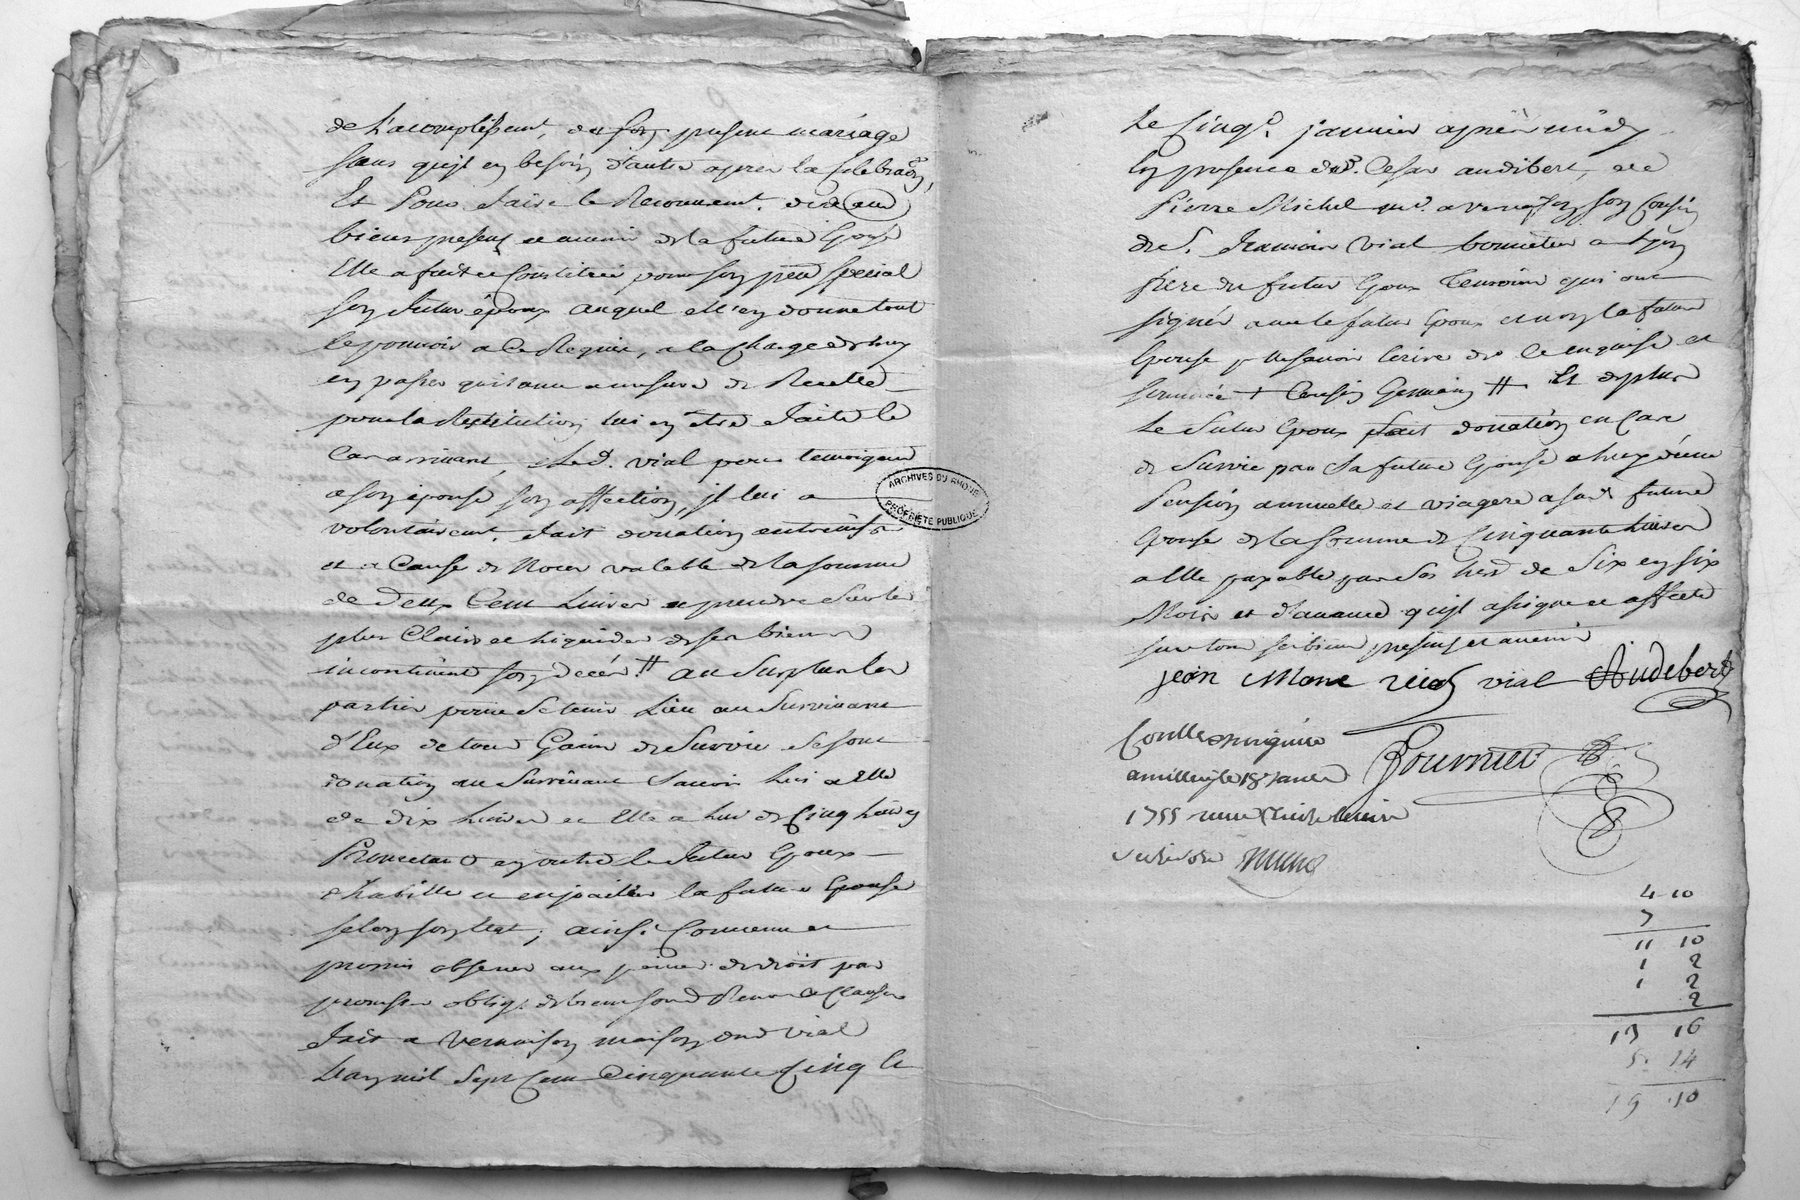 de L'acomplissemt. du sus. present mariage
sans qu'jl en besoin d'autre apres la Celebraon,
Et Pour faire le Recouvremt. desd
biens presens et avenir de la future Epouse
Elle a fait et Constitué pour son pcur special
son futur époux auquel elle en donne tout
le pouvoir a Ce Requis, a la Charge de luy
en passer quittance a mesure de Recette
pour la Restitution lui en être faite le
Cas arrivant, Led. vial pour temoigner
a son epouse son affection, jl lui a
volontairemt. fait donation entrevifs
et a Cause de Noces valable de la somme
de Deux Cent Livres a prendre sur les
plus Clairs et Liquides de ses biens
incontinent son deces. # au Surplus les
parties pour se tenir Lieu au Survivant
d'Eux de tous Gains de Survie se font
donation au Survivant Savoir Lui a Elle
de dix Livres et Elle a Lui de Cinq Livres
en outre le futur Epoux
habille et enjoailler la future Epouse
selon son etat; ainsi Convenu et
promis observer aux peines de droit par
promesses obligs. de biens soum. Renon. et Clauses
fait a vernaison maison dud vial
L'an mil Sept Cent Cinquante Cinq Le
Le Cinqe. janvier après midy
En presence de sr. Cesar audibert, et de
Pierre Michel md. a vernaison son Cousin
de S. vial bonnetier a Lyon
frere du futur Epoux temoins qui ont
signés avec le futur Epoux et non la future
Epouse p ne savoir Ecrire de ce enquise et
sommée + Cousin Germain # Et de plus
Le futur Epoux fait donation en Cas
de Survie par sa future Epouse a luy d'une
Pension annuelle et viagere a sad future
Epouse de la somme de Cinquante Livres
a Elle payable par ses hers de Six en six
Mois et d'avance qu'jl assigne et affecte
sur tous ses biens presens et avenir
jean vial Audebert
Controllé
a millery le 18 Janer Fournier
1755
4 10
7
11 10
1 2
1 2
2
13 16
5 14
19 10
ARCHIVES DU RHONE
PROPRIETE PUBLIQUE